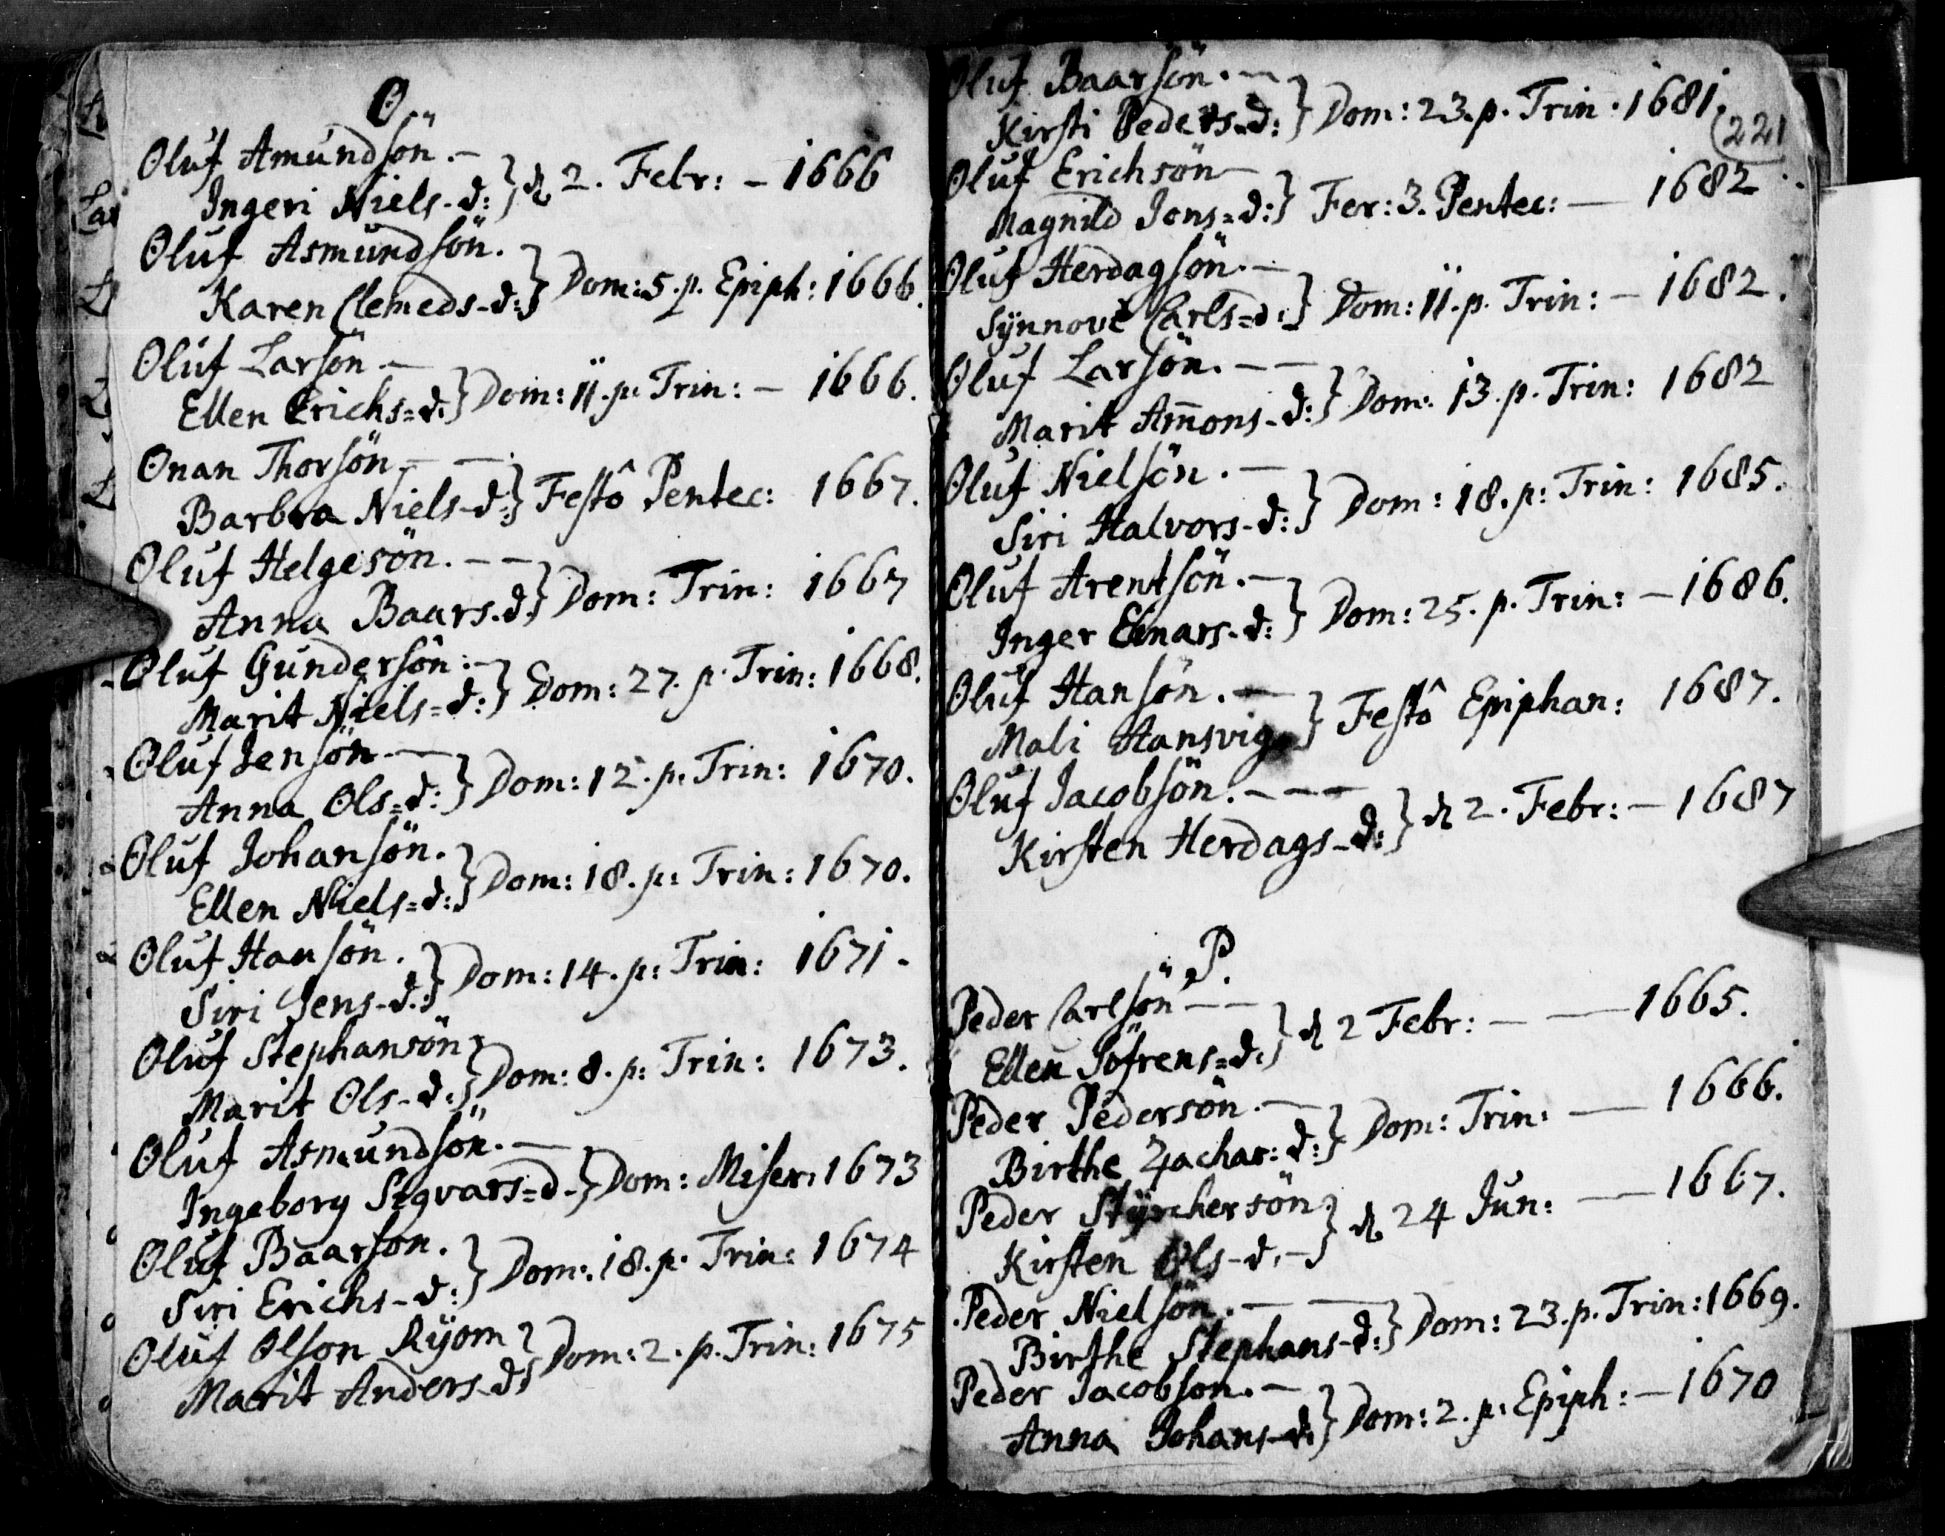 O
Oluf Amundsön.—
Ingeri Niels-d:} d 2. Febr: — 1666
Oluf Asmundsön.
Karen Clemeds-d:} Dom: 5. p. Epiph: 1666.
Oluf Larsön.—
Ellen Erichs=d:} Dom: 11. p. Trin: — 1666.
Onan Thorsön. — —
Barbra Niels-d:} Festô Pentec: 1667.
Oluf Helgesön. — —
Anna Baars-d:} Dom: Trin: 1667
Oluf Gundersön:—
Marit Niels=d:} Dom: 27. p. Trin: 1668.
Oluf Jensön.—
Anna Ols=d:} Dom: 12. p. Trin: 1670.
Oluf Johansön.
Ellen Niels=d:} Dom: 18. p: Trin: 1670.
Oluf Hansön.
Siri Jens-d:} Dom: 14. p: Trin: 1671.
Oluf Stephansön
Marit Ols-d:} Dom: 8. p: Trin: 1673.
Oluf Asmundsön. —
Ingeborg Sigvars=d-} Dom: Miser: 1673
Oluf Baarson.
Siri Erichs-d:} Dom: 18. p. Trin: 1674
Oluf Olson Ryom
Marit Anders-d:} Dom: 2. p. Trin: 1675
Oluf Baarsön. —
Kirsti Peders-d:} Dom: 23. p. Trin. 1681.
221
Oluf Erichsön—
Magnild Jens=d:} Fer: 3. Pentec: — 1682
Oluf Herdagsön. —
Synnove Carls=d:} Dom: 11. p. Trin: — 1682.
Oluf Larsön. — —
Marit Am̄ons-d:} Dom: 13. p. Trin: 1682
Oluf Nielsön. —
Siri Halvors-d:} Dom: 18. p: Trin: 1685.
Oluf Arentsön. —
Inger Einars-d:} Dom: 25. p. Trin: — 1686.
Oluf Hansön. —
Mali Hansvig} Festô Epiphan: 1687.
Oluf Jacobsön. — — —
Kirsten Herdags-d:} d 2. Febr: — 1687
P.
Peder Carlsön — —
Ellen Söfrens=d:} d 2 Febr: — — 1665.
Peder Pedersön. —
Birthe Zachar: d:} Dom: Trin: — 1666.
Peder Styrchersön
Kirsten Ols-d. —} d. 24 Jun: — 1667.
Peder Nielsön. — —
Birthe Stephans-d:} Dom: 23. p. Trin: 1669.
Peder Jacobson. —
Anna Johans-d:} Dom: 2. p: Epiph: — 1670